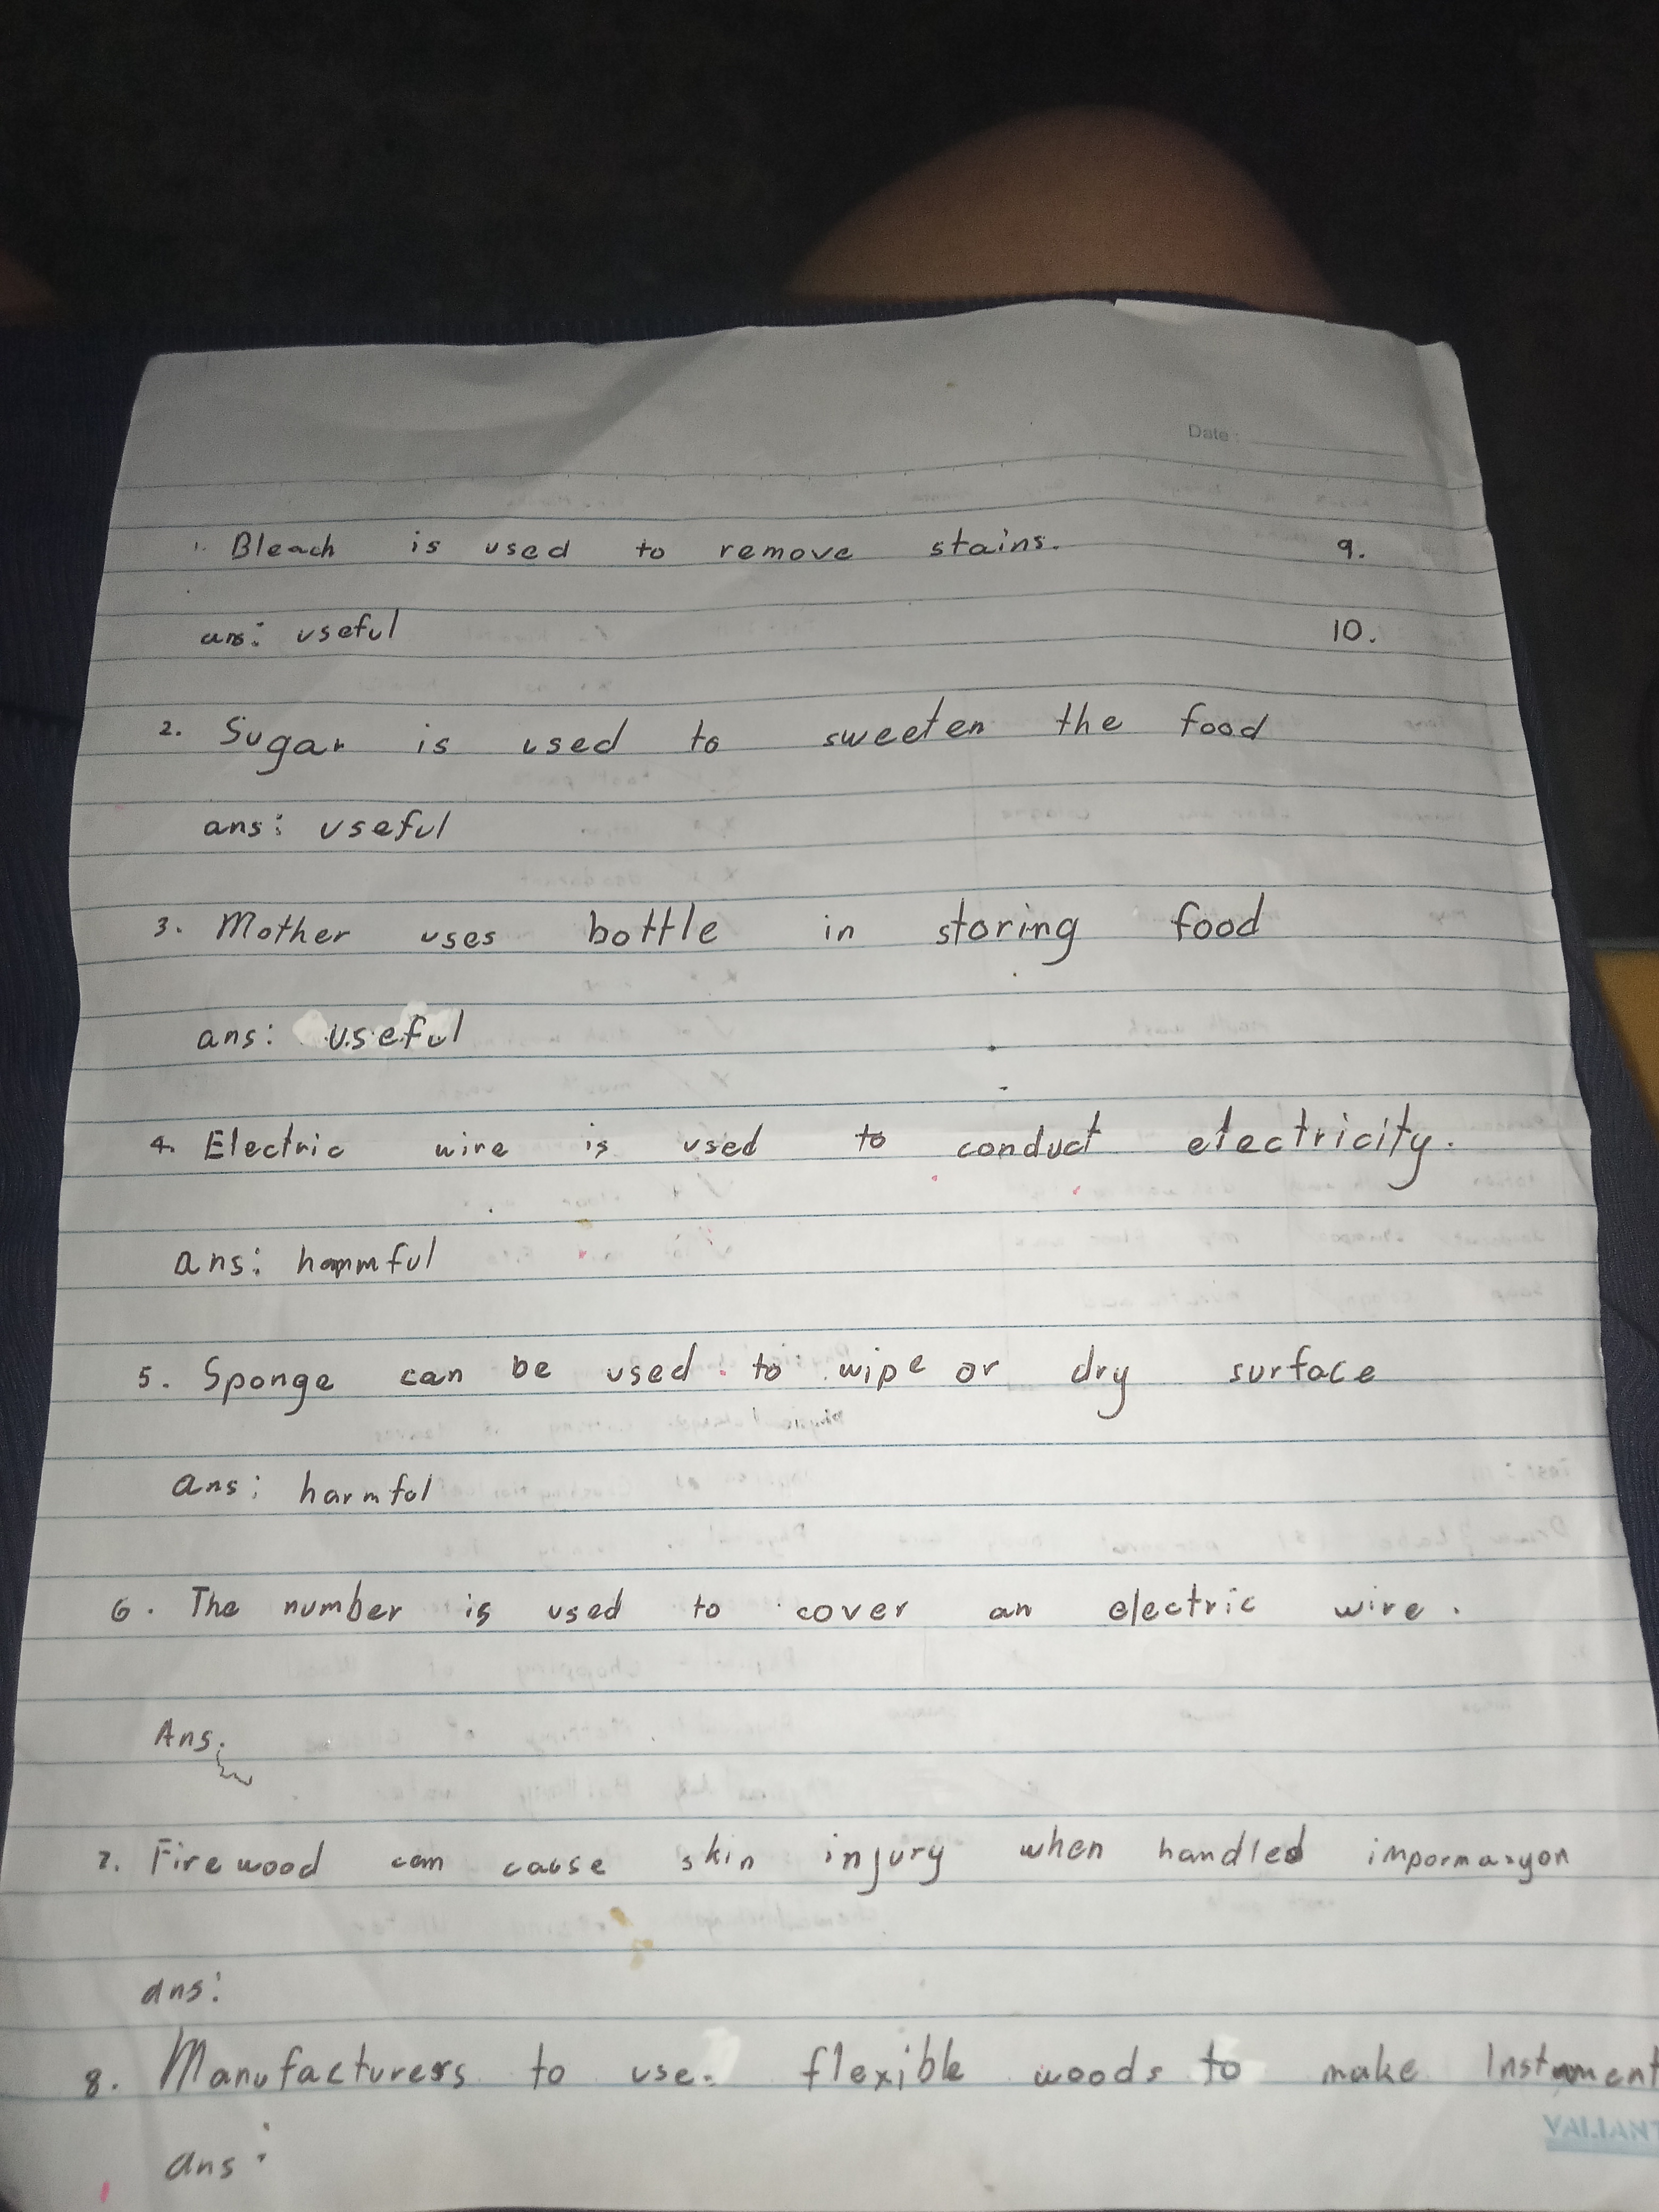 Date:
1. Bleach is used to remove stains. 9.
ans: useful 10.
2. Sugar is used to sweeten the food
ans: useful
3. Mother uses bottle in storing food
ans: useful
4. Electric wire is used to conduct electricity.
ans: harmful
5. Sponge can be used to wipe or dry surface
ans: harmful
6. The number is used to cover an electric wire.
Ans.
7. Firewood can cause skin injury when handled impormasyon
ans:
8. Manufacturers to use. flexible woods to make Instrument
VALIANT
ans: